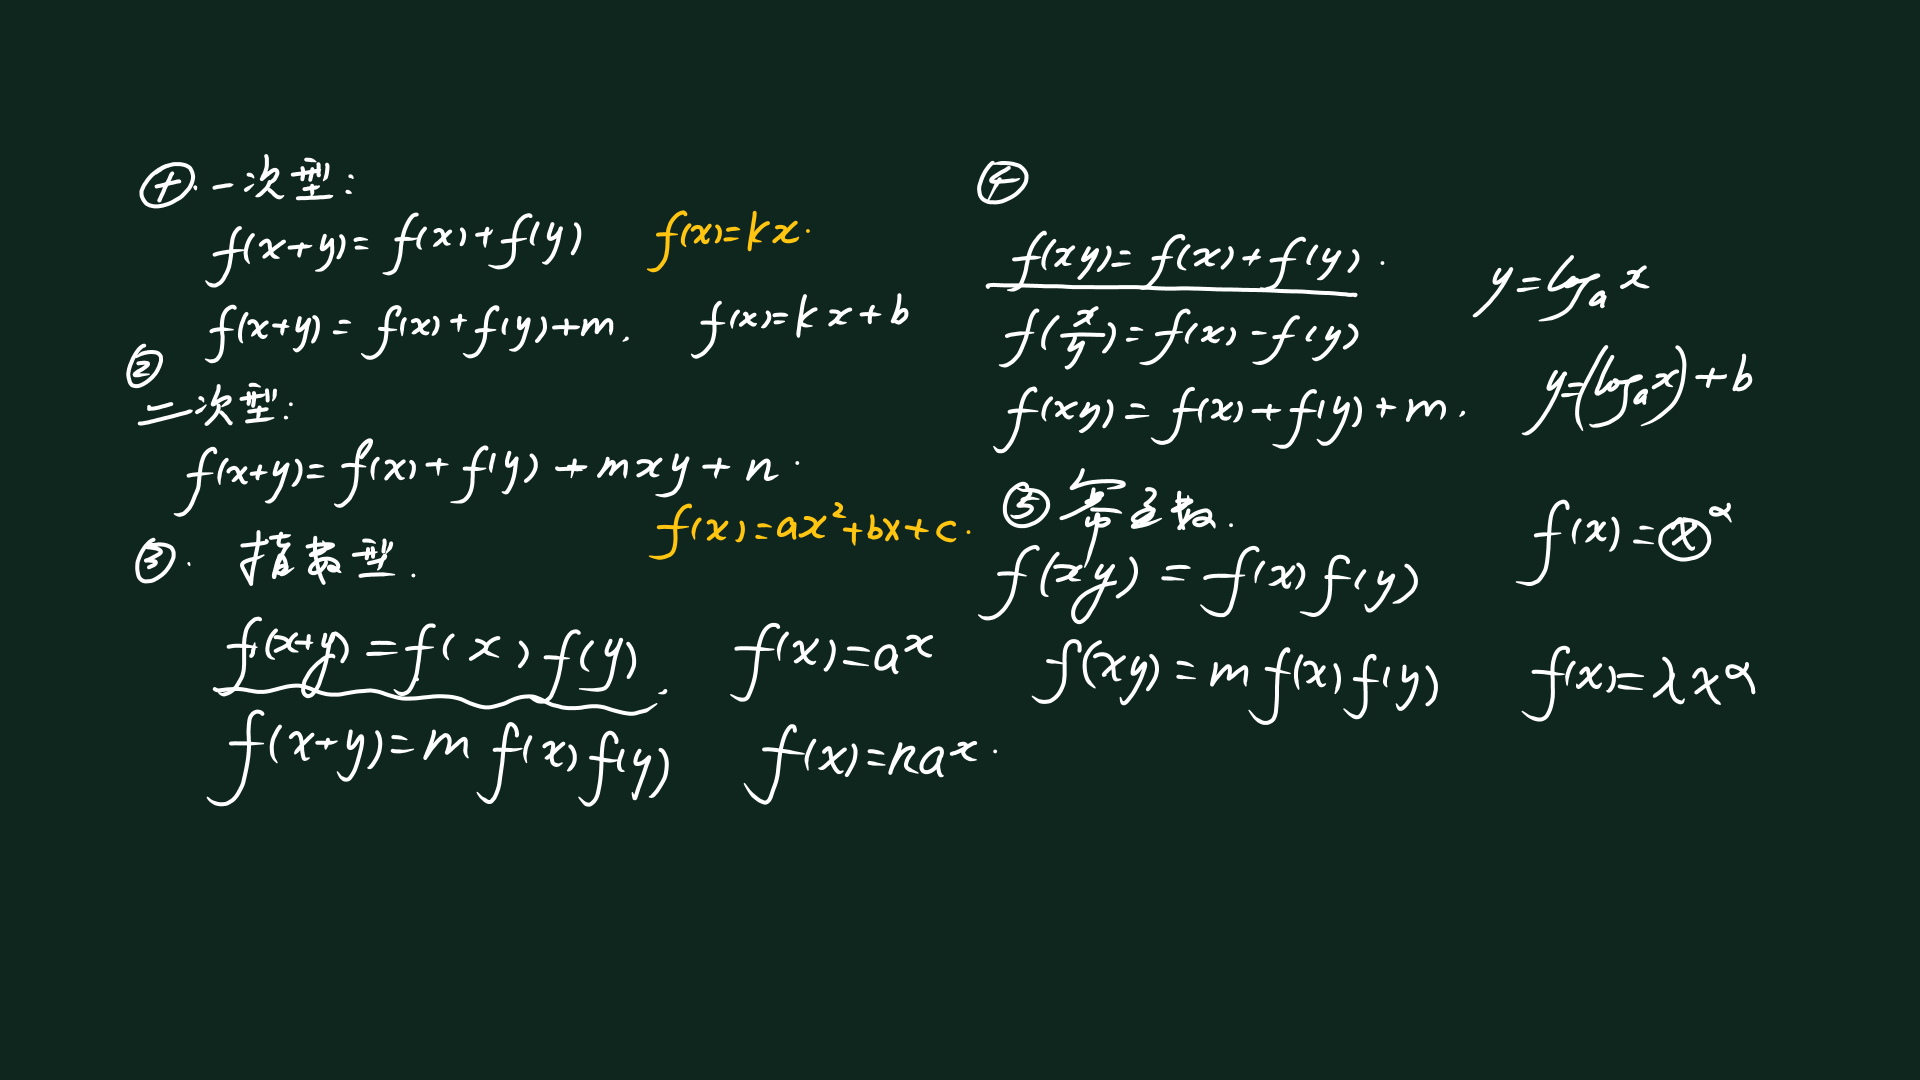 ①. 一次型:
f(x+y)= f(x)+f(y) f(x)=kx.
f(x+y) = f(x)+f(y)+m. f(x)=kx+b
②
二次型:
f(x+y)= f(x)+ f(y) + mxy + n.
f(x)=ax²+bx+c.
③. 指数型.
f(x+y) = f(x) f(y). f(x)=aˣ
f(x+y)= m f(x) f(y) f(x)=naˣ.
④
f(xy)= f(x)+f(y). y=logₐx
f(x/y)=f(x)-f(y)
f(xy) = f(x)+f(y)+m. y=(logₐx)+b
⑤ 幂函数. f(x)=x^α
f(xy) = f(x) f(y)
f(xy) = m f(x) f(y) f(x)=λx^α